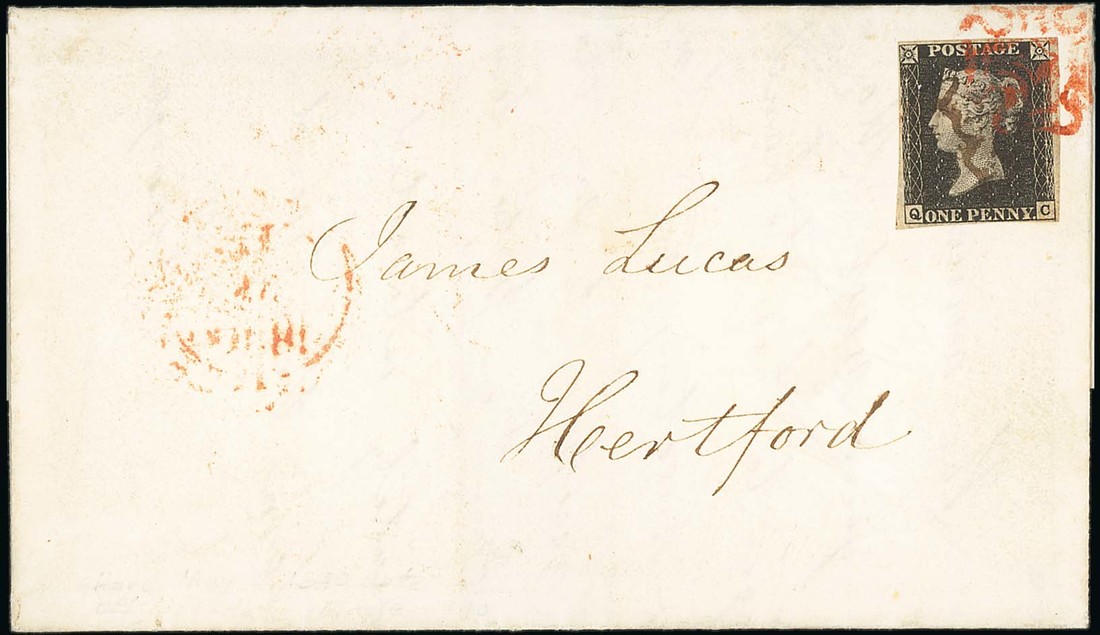 POSTAGE
Q ONE PENNY C
James Lucas
Hertford